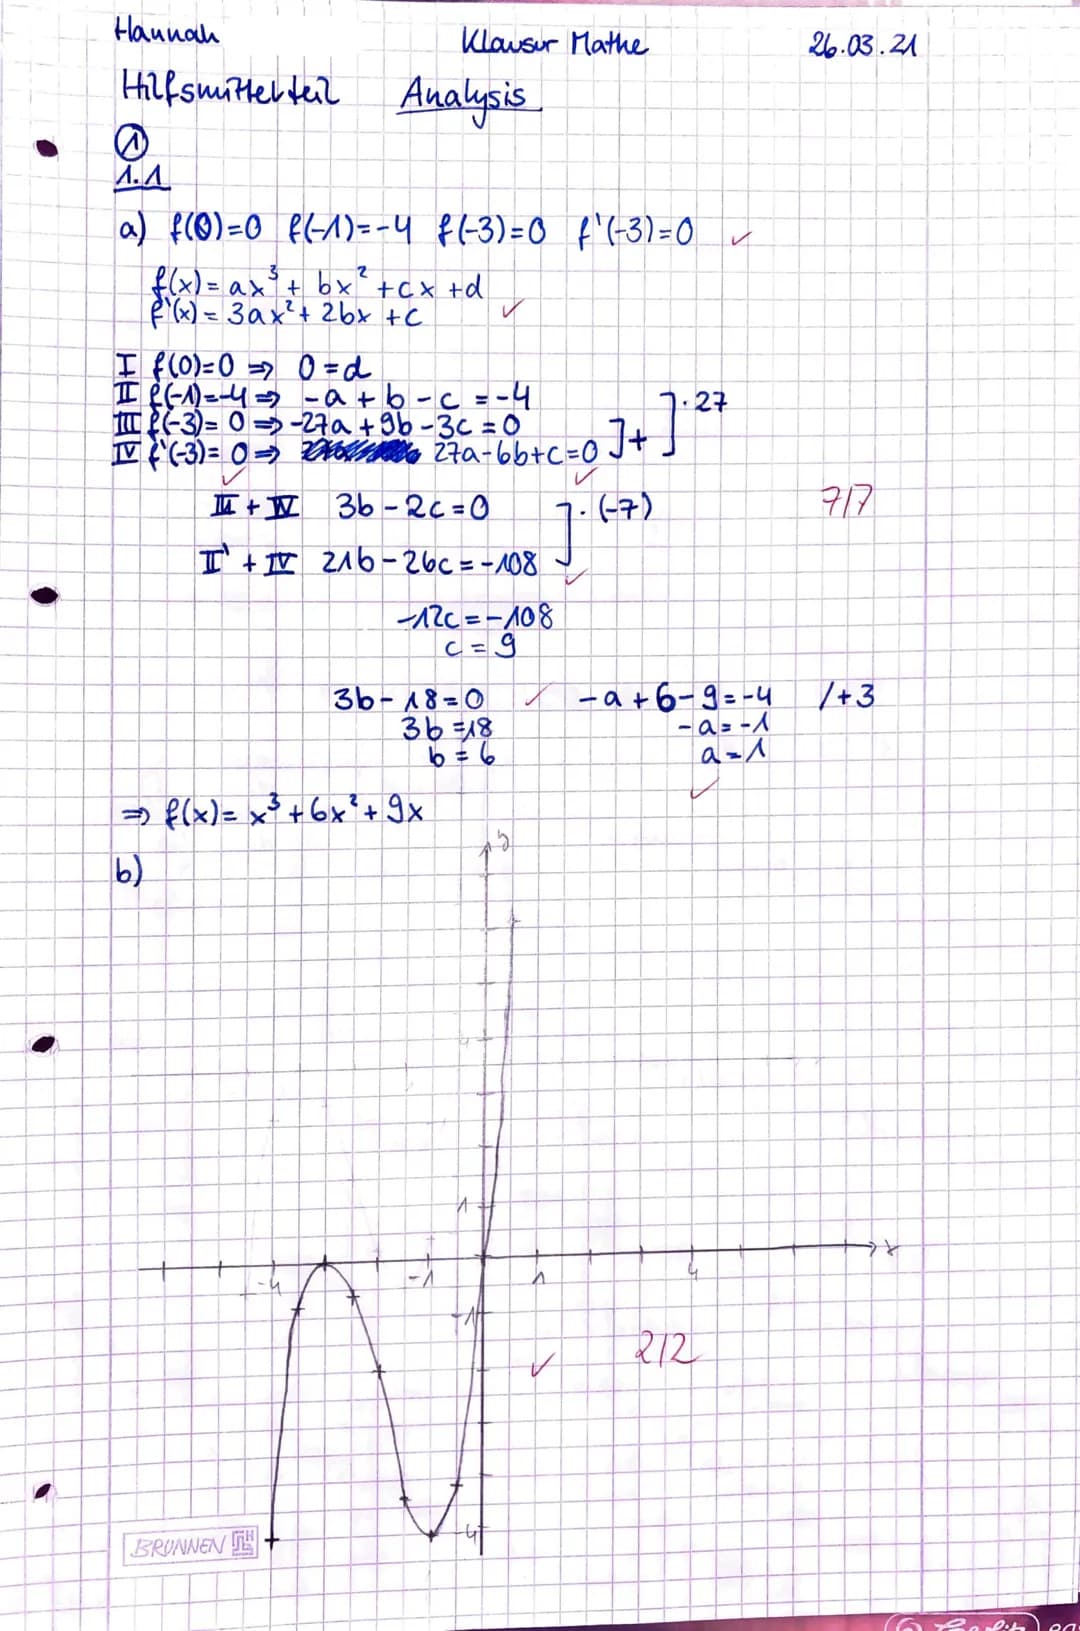 Hannah Klausur Mathe 26.03.21
Hilfsmittelteil Analysis
①
1.1
a) f(0)=0 f(-1)=-4 f(-3)=0 f'(-3)=0 ✓
f(x)= ax³ + bx² + cx + d
f'(x) = 3ax² + 2bx + c ✓
I f(0)=0 ⇒ 0=d
II f(-1)=-4 ⇒ -a + b - c = -4 ]·27
III f(-3)= 0 ⇒ -27a + 9b - 3c = 0
IV f'(-3)= 0 ⇒ 27a - 6b + c = 0 ]+
✓ ✓
III + IV 3b - 2c = 0 ]·(-7) 7/7
II' + IV 21b - 26c = -108
✓
-12c = -108
c = 9
3b - 18 = 0 ✓ -a + 6 - 9 = -4 /+3
3b = 18 -a = -1
b = 6 a = 1
✓
⇒ f(x)= x³ + 6x² + 9x
y
b)
4
1
x
-4 -1 1 4
-1
✓ 2/2
-4
BRUNNEN